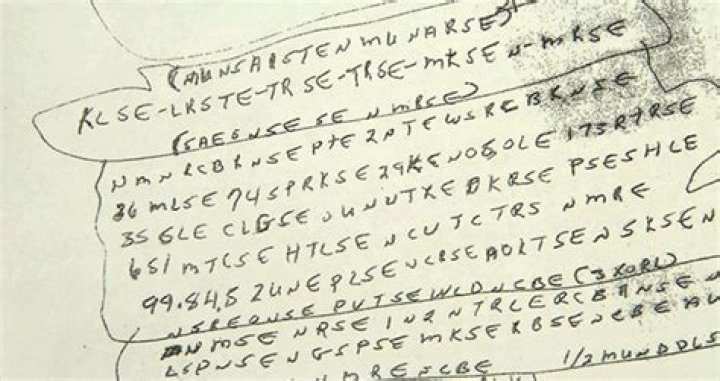 (MUNSAISTENMUNARSE)
KLSE-LRSTE-TRSE-TRSE-MKSEN-MRSE
(SAEGNSESE NMRSE)
NMNRCBRNSEPTE2NTEWSRCBRNSE
36MLSE74SPRKSE29KENOSOLE175RTRSE
35GLE CLGSEUNUTXEDKRSE PSESHLE
651MTCSE HTLSENCUTCTRS NMRE
99.84.52UNEPLSENCRSEAOLTSENSKSEN
NSREONSE PUTSEWLDNCBE(3XORL)
NMSE NRSE IN2NTRLERCBRNSE
LSPNSENGSPSE MKSERBSENCBEAU
MRENCBE 1/2MUNDDLS